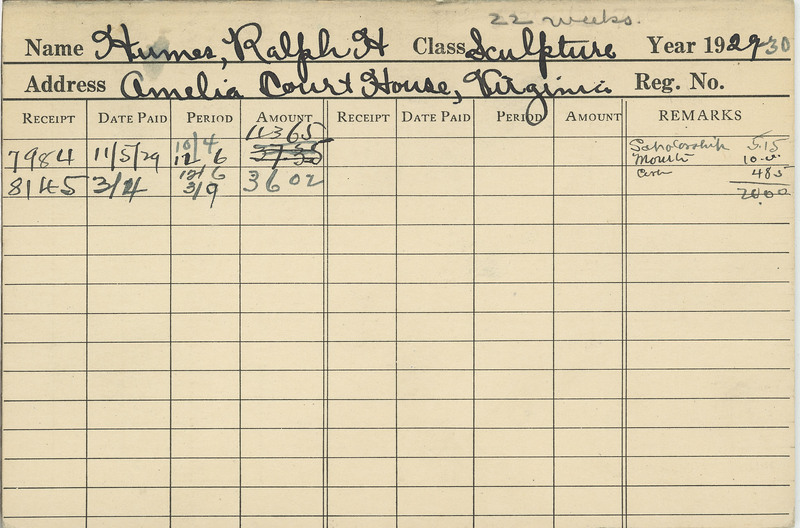 22 weeks.
Name Humes, Ralph H Class Sculpture Year 1929-30
Address Amelia Court House, Virginia Reg. No.
RECEIPT DATE PAID PERIOD AMOUNT RECEIPT DATE PAID PERIOD AMOUNT REMARKS
113 65
7984 11/5/29 10/4 12 6 37.35 Scholarship 5.15
Month 10.00
8145 3/4 12/6 3/9 36 02 Cash 485
20.00